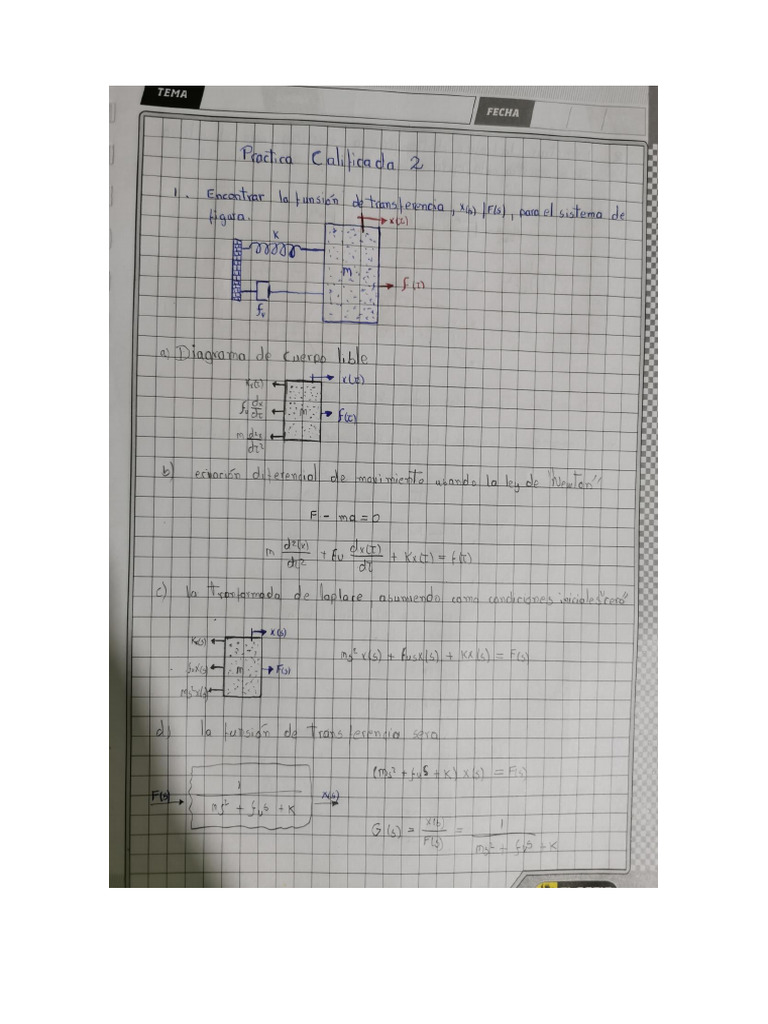 TEMA
FECHA
Practica Calificada 2
1. Encontrar la funsión de transferencia, x(s) / F(s), para el sistema de
figura.
x(t)
K
m
f(t)
fv
a) Diagrama de cuerpo lible
x(t)
fv dx/dt
m
f(t)
m d²x/dt²
b) ecuación diferencial de movimiento usando la ley de "Newton"
F - ma = 0
m d²(x)/dt² + fv dx(t)/dt + Kx(t) = f(t)
c) la tranformada de laplace, asumiendo como condiciones iniciales "cero"
x(s)
m
F(s)
ms²x(s)
ms²x(s) + fvsx(s) + Kx(s) = F(s)
d) la funsión de transferencia sera
(ms² + fvs + K) x(s) = F(s)
F(s)
1 / ms² + fvs + K
x(s)
G(s) = x(s)/F(s) = 1 / ms² + fvs + K